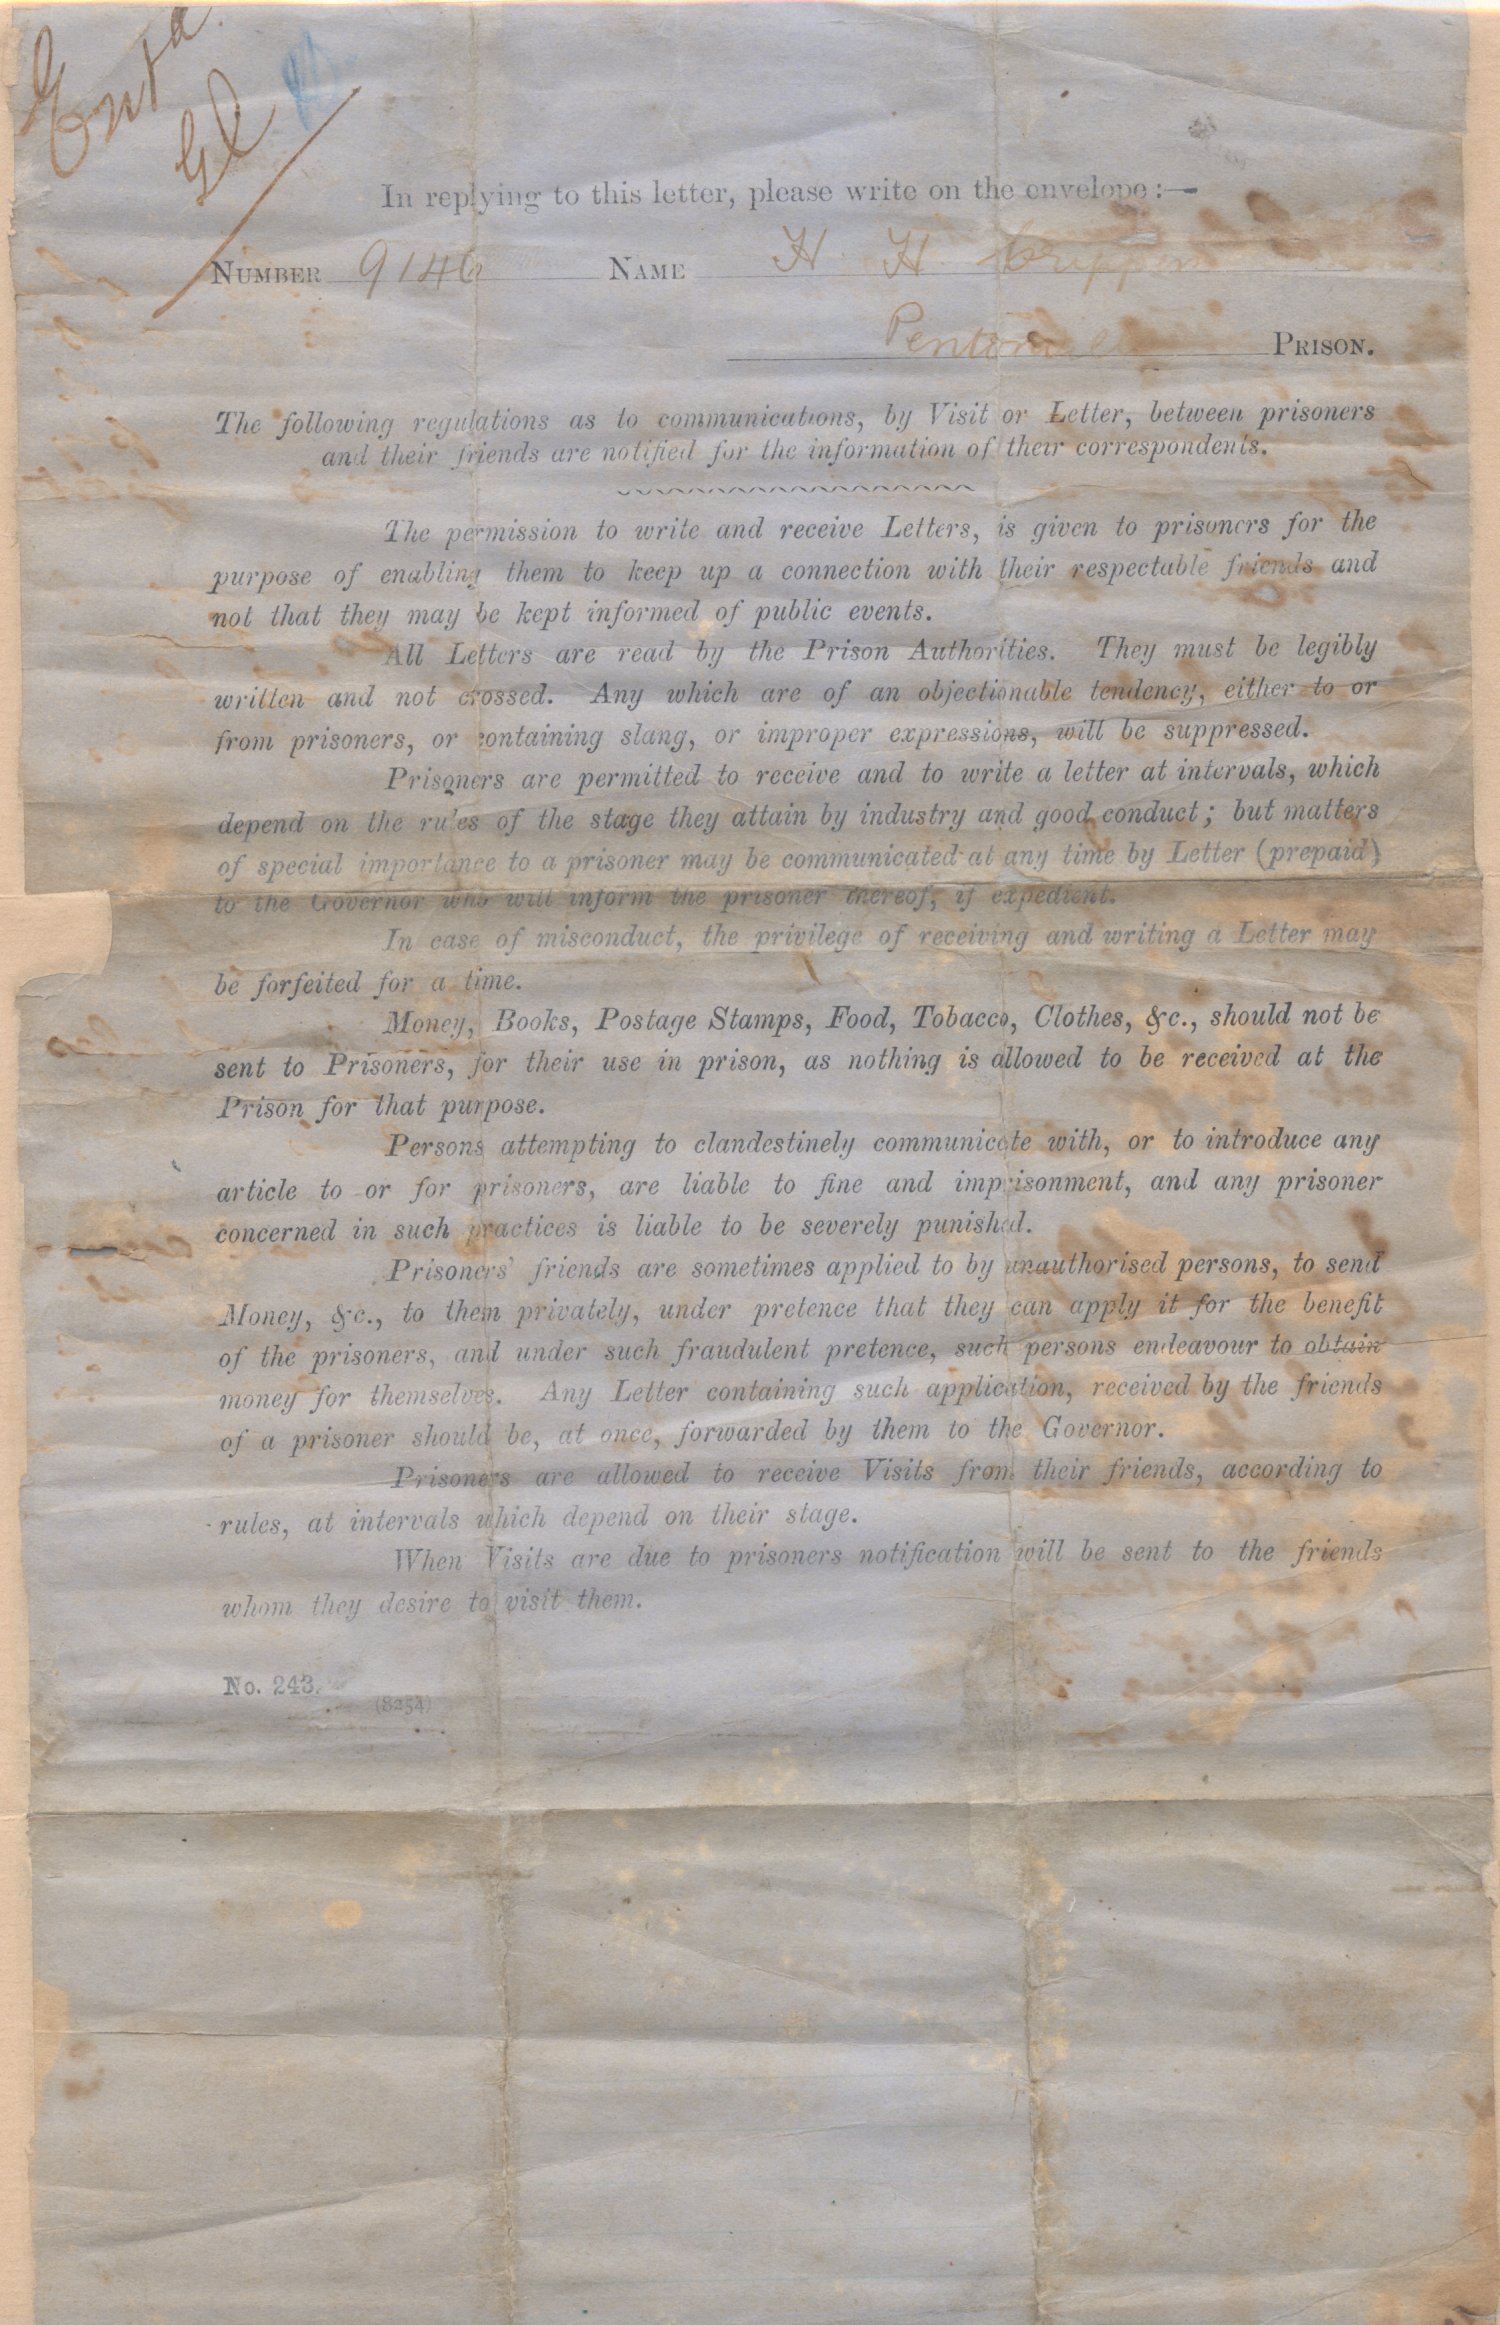 Entd.
In replying to this letter, please write on the envelope:—
NUMBER 9146 NAME H. H. Crippen
Pentonville PRISON.
The following regulations as to communications, by Visit or Letter, between prisoners
and their friends are notified for the information of their correspondents.
The permission to write and receive Letters, is given to prisoners for the
purpose of enabling them to keep up a connection with their respectable friends and
not that they may be kept informed of public events.
All Letters are read by the Prison Authorities. They must be legibly
written and not crossed. Any which are of an objectionable tendency, either to or
from prisoners, or containing slang, or improper expressions, will be suppressed.
Prisoners are permitted to receive and to write a letter at intervals, which
depend on the rules of the stage they attain by industry and good conduct; but matters
of special importance to a prisoner may be communicated at any time by Letter (prepaid)
to the Governor who will inform the prisoner thereof, if expedient.
In case of misconduct, the privilege of receiving and writing a Letter may
be forfeited for a time.
Money, Books, Postage Stamps, Food, Tobacco, Clothes, &c., should not be
sent to Prisoners, for their use in prison, as nothing is allowed to be received at the
Prison for that purpose.
Persons attempting to clandestinely communicate with, or to introduce any
article to or for prisoners, are liable to fine and imprisonment, and any prisoner
concerned in such practices is liable to be severely punished.
Prisoners' friends are sometimes applied to by unauthorised persons, to send
Money, &c., to them privately, under pretence that they can apply it for the benefit
of the prisoners, and under such fraudulent pretence, such persons endeavour to obtain
money for themselves. Any Letter containing such application, received by the friends
of a prisoner should be, at once, forwarded by them to the Governor.
Prisoners are allowed to receive Visits from their friends, according to
rules, at intervals which depend on their stage.
When Visits are due to prisoners notification will be sent to the friends
whom they desire to visit them.
No. 243.
(8254)